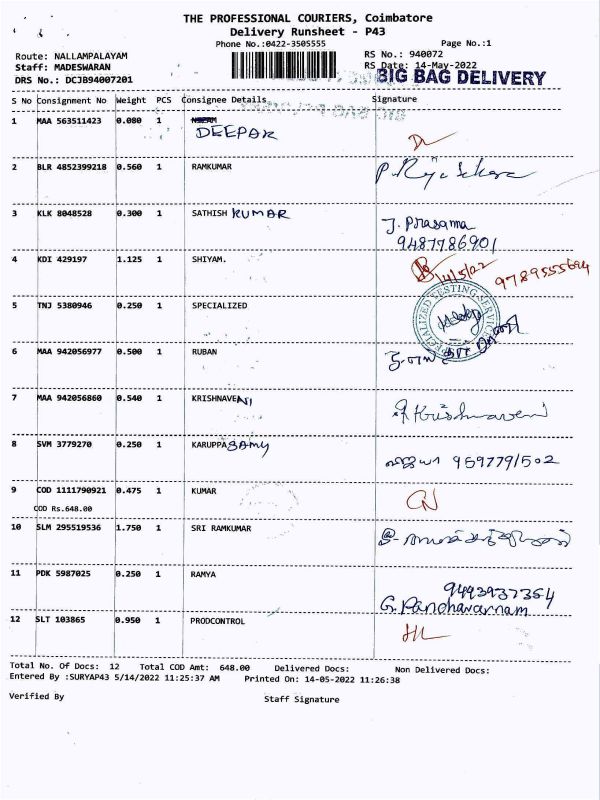 THE PROFESSIONAL COURIERS, Coimbatore
Delivery Runsheet - P43
Phone No.:0422-3505555
Page No.:1
Route: NALLAMPALAYAM
RS No.: 940072
Staff: MADESWARAN
RS Date: 14-May-2022
DRS No.: DCJB94007201
BIG BAG DELIVERY
S No Consignment No Weight PCS Consignee Details Signature
1 MAA 563511423 0.080 1 DEEPAK
2 BLR 4852399218 0.560 1 RAMKUMAR
3 KLK 8048528 0.300 1 SATHISH KUMAR J. Prasama
9487786901
4 KDI 429197 1.125 1 SHIYAM. 14/5/22 9789555694
5 TNJ 5380946 0.250 1 SPECIALIZED
SPECIALIZED TESTING SERVICE
6 MAA 942056977 0.500 1 RUBAN
7 MAA 942056860 0.540 1 KRISHNAVENI Krishnaveni
8 SVM 3779270 0.250 1 KARUPPASAMY 9597791502
9 COD 1111790921 0.475 1 KUMAR
COD Rs.648.00
10 SLM 295519536 1.750 1 SRI RAMKUMAR
11 PDK 5987025 0.250 1 RAMYA 9493937354
G. Panchavarnam
12 SLT 103865 0.950 1 PRODCONTROL
Total No. Of Docs: 12 Total COD Amt: 648.00 Delivered Docs: Non Delivered Docs:
Entered By :SURYAP43 5/14/2022 11:25:37 AM Printed On: 14-05-2022 11:26:38
Verified By Staff Signature